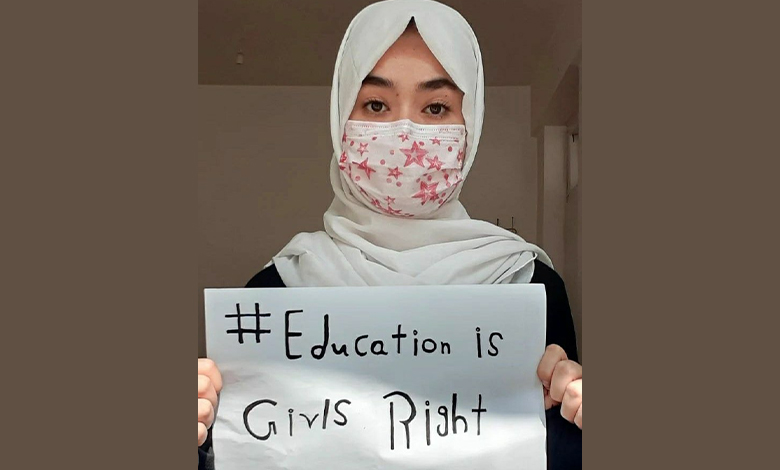 #Education is
Girls Right